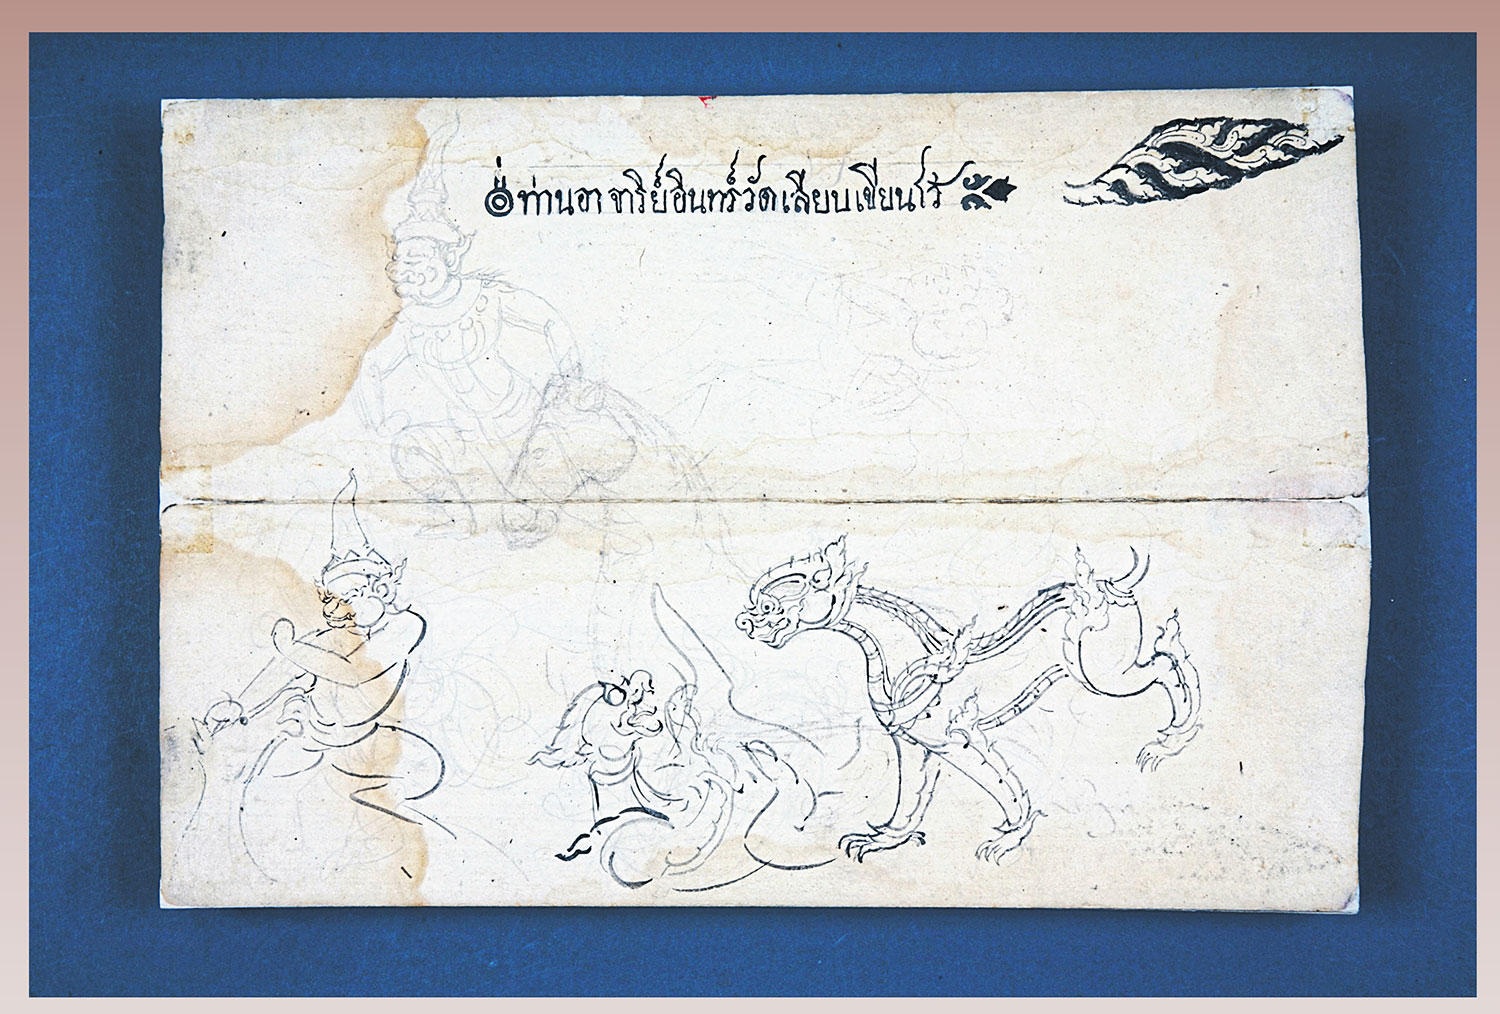 ๏ ท่านอาจาริย์อินทร์วัดเลียบเขียนไว้